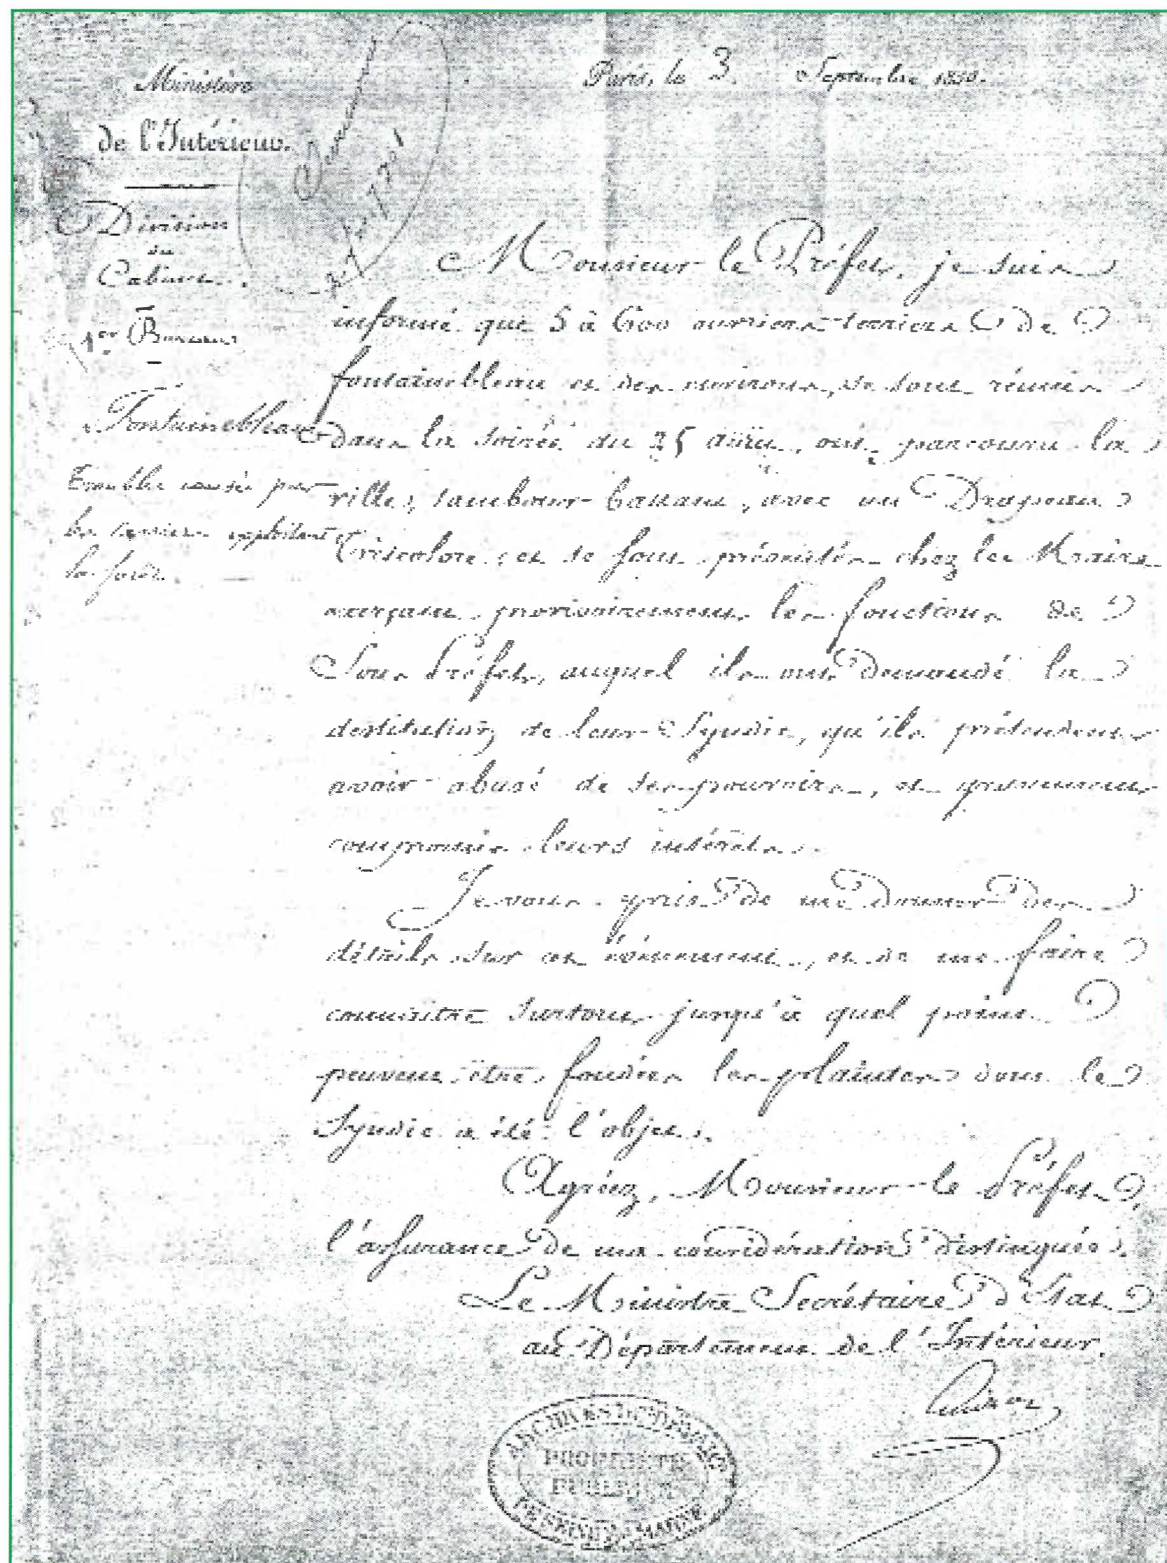 Ministère
de l'Intérieur.
Division
du
Cabinet.
1er Bureau
Fontainebleau
Troubles causés par
les carriers exploitant
la forêt.
Paris, le 3 Septembre 1830.
Monsieur le Préfet, je suis
informé que 5 à 600 ouvriers carriers de
fontainebleau et des environs, se sont réunis
dans la soirée du 25 août, ont parcouru la
ville, tambour battant, avec un Drapeau
tricolore, et se sont présentés chez le Maire
exerçant provisoirement les fonctions de
Sous Préfet, auquel ils ont demandé la
destitution de leur Syndic, qu'ils prétendent
avoir abusé de ses pouvoirs, et gravement
compromis leurs intérêts.
Je vous prie de me donner des
détails sur cet événement, et de me faire
connaître surtout jusqu'à quel point
peuvent être fondées les plaintes dont le
Syndic a été l'objet.
Agréez, Monsieur le Préfet,
l'assurance de ma considération distinguée.
Le Ministre Secrétaire d'Etat
au Département de l'Intérieur.
Guizot
ARCHIVES DU DÉPART
PROPRIÉTÉ
PUBLIQUE
DE SEINE & MARNE